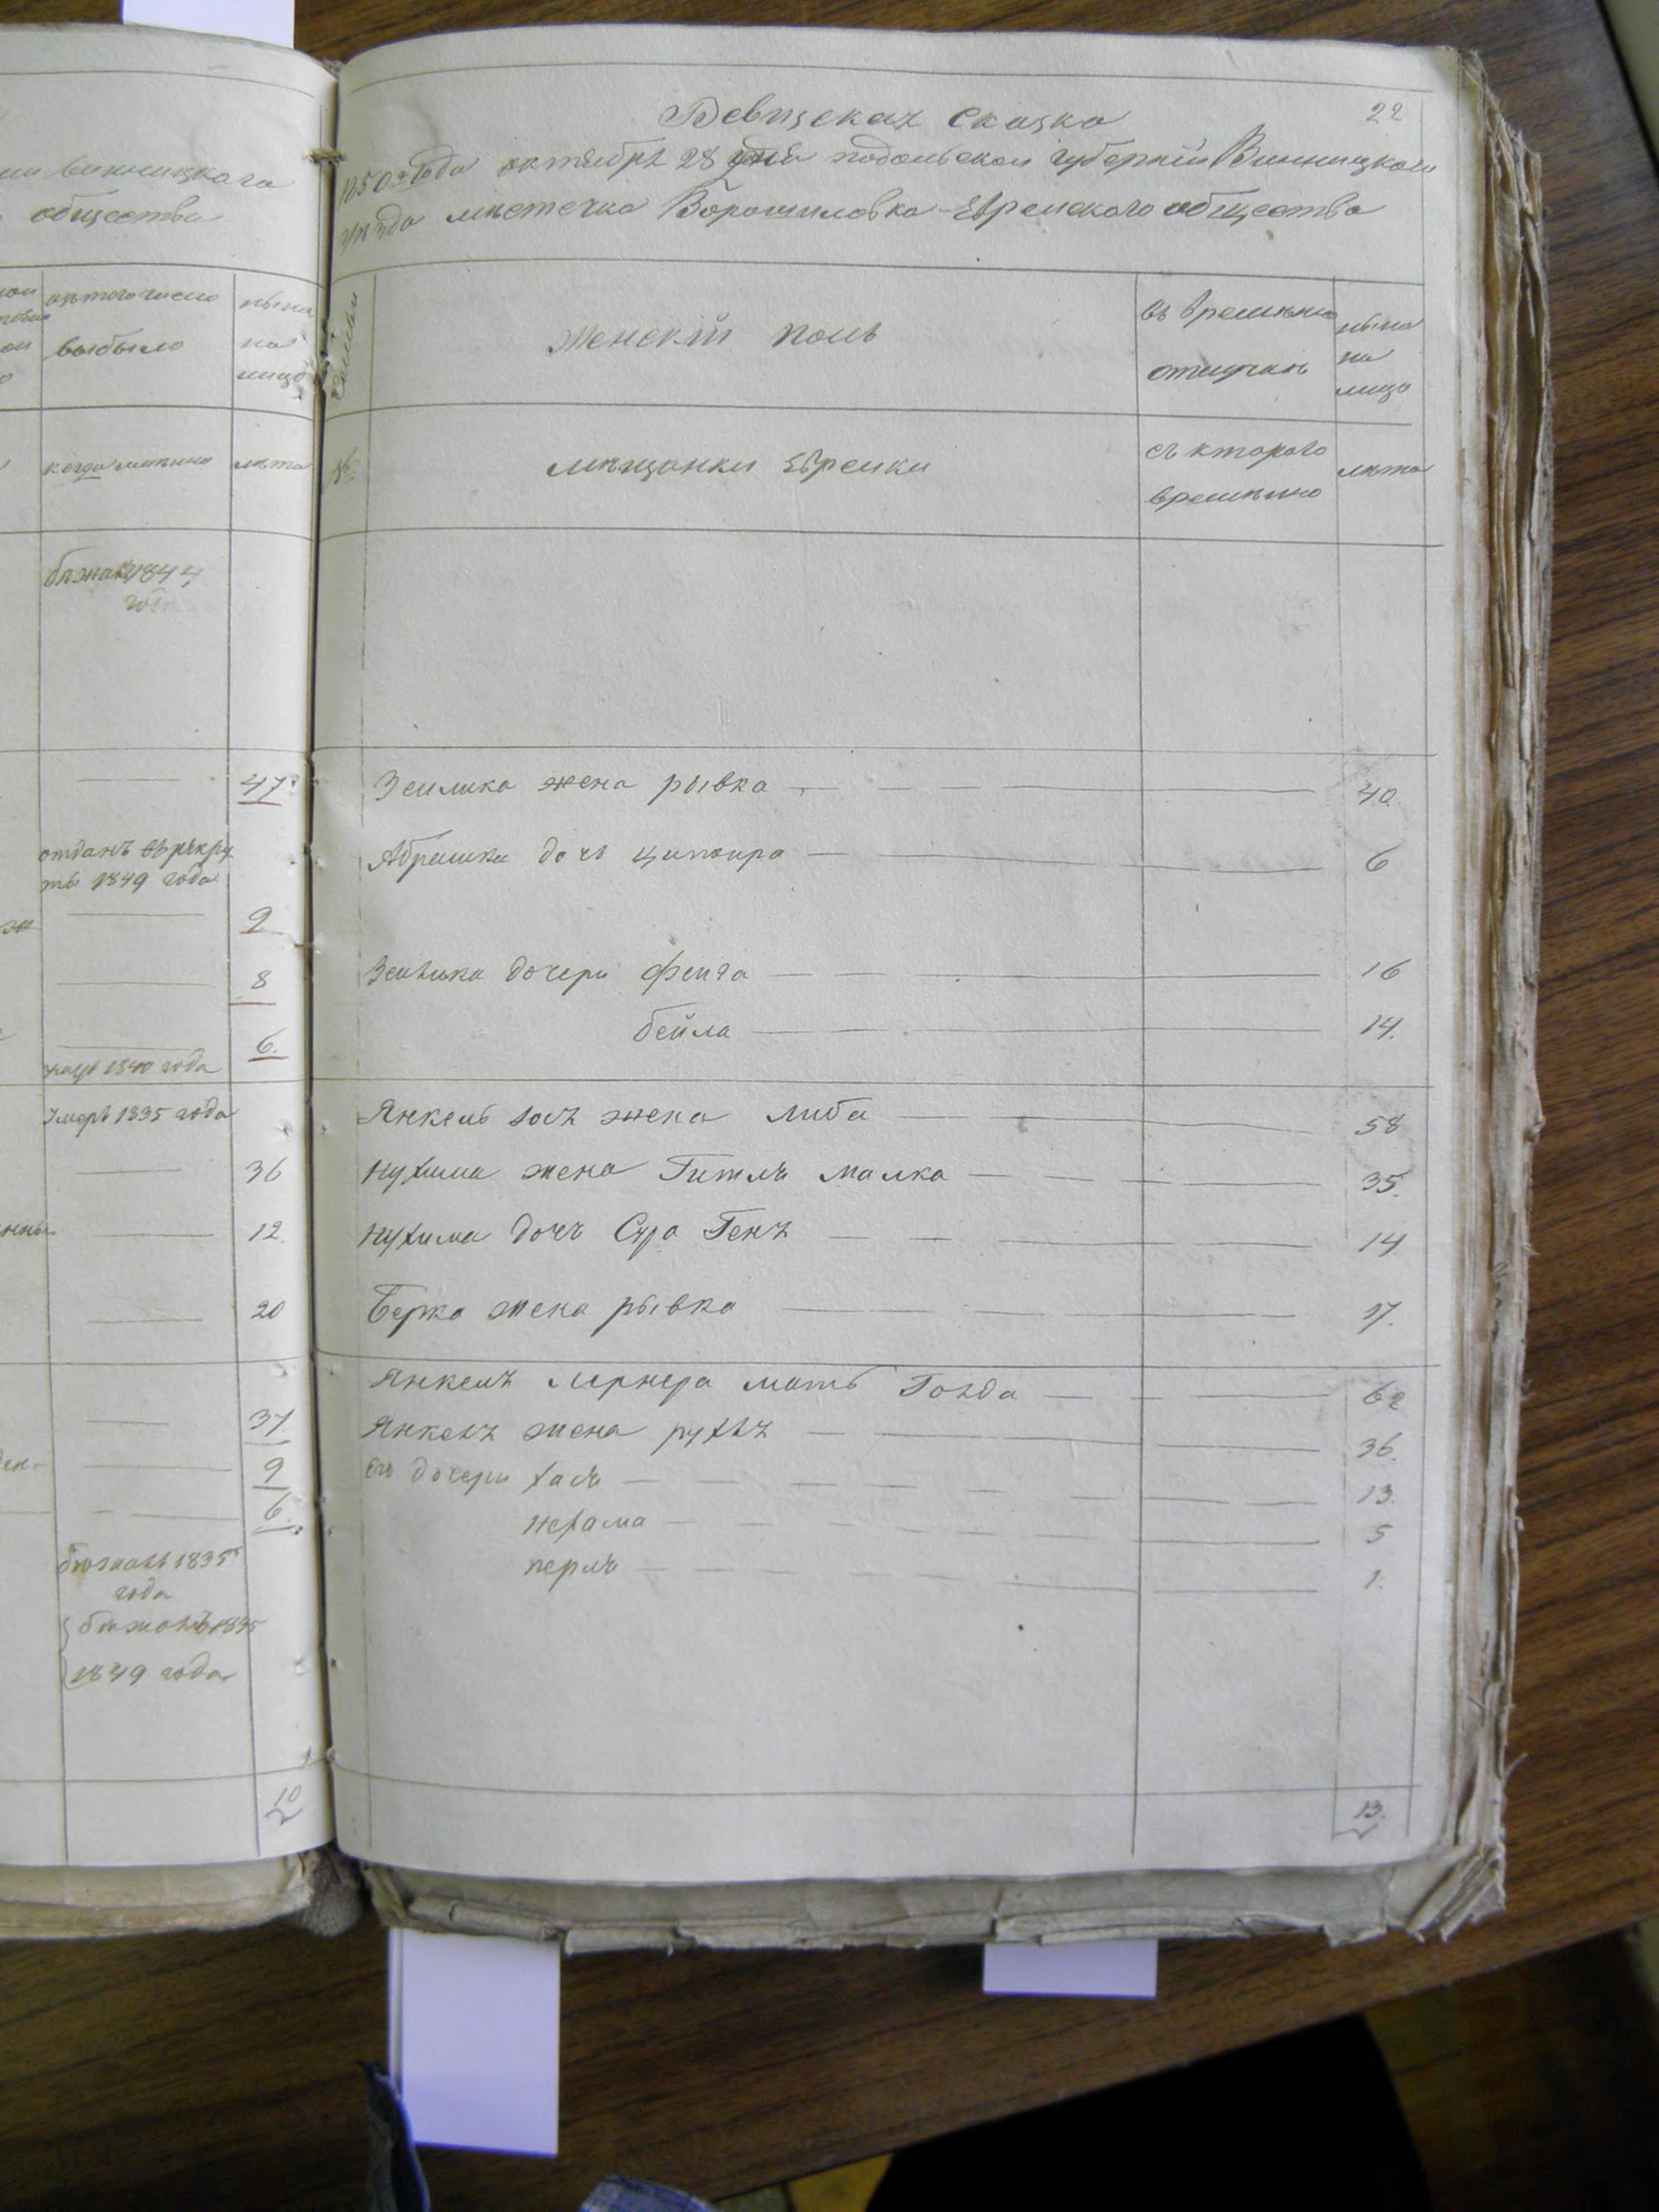 винницкаго
общества
изтого число
выбыло
ныне
на
лицо
когда имянно
лета
бежалъ 1844
года
47
отданъ въ рекру
ты 1849 года
9
8
6.
1840 года
умеръ 1835 года
36
12.
20
37.
9
6.
бежалъ 1835
года
бежалъ 1835
1849 года
10
22
Ревизская сказка
1850 года октября 28 дня подольской губернии Винницкаго
уезда местечка Ворошиловка Еврейскаго общества
Семьи
Женскій полъ
въ временно
отлучки
ныне
на
лицо
№
мещанки Еврейки
съ кторого
времяни
лета
Зейлика жена рывка 40.
Абрамка дочь ципоира 6
Зейлика дочери фейга 16
бейла 14.
Янкель жена либа 58
нухима жена Гитля малка 35.
нухима дочъ Сура Геня 14
берка жена рывка 17.
Янкеля лернера мать Голда 62
Янкеля жена рухля 36.
его дочери хася 13.
нехама 5
перля 1.
13.